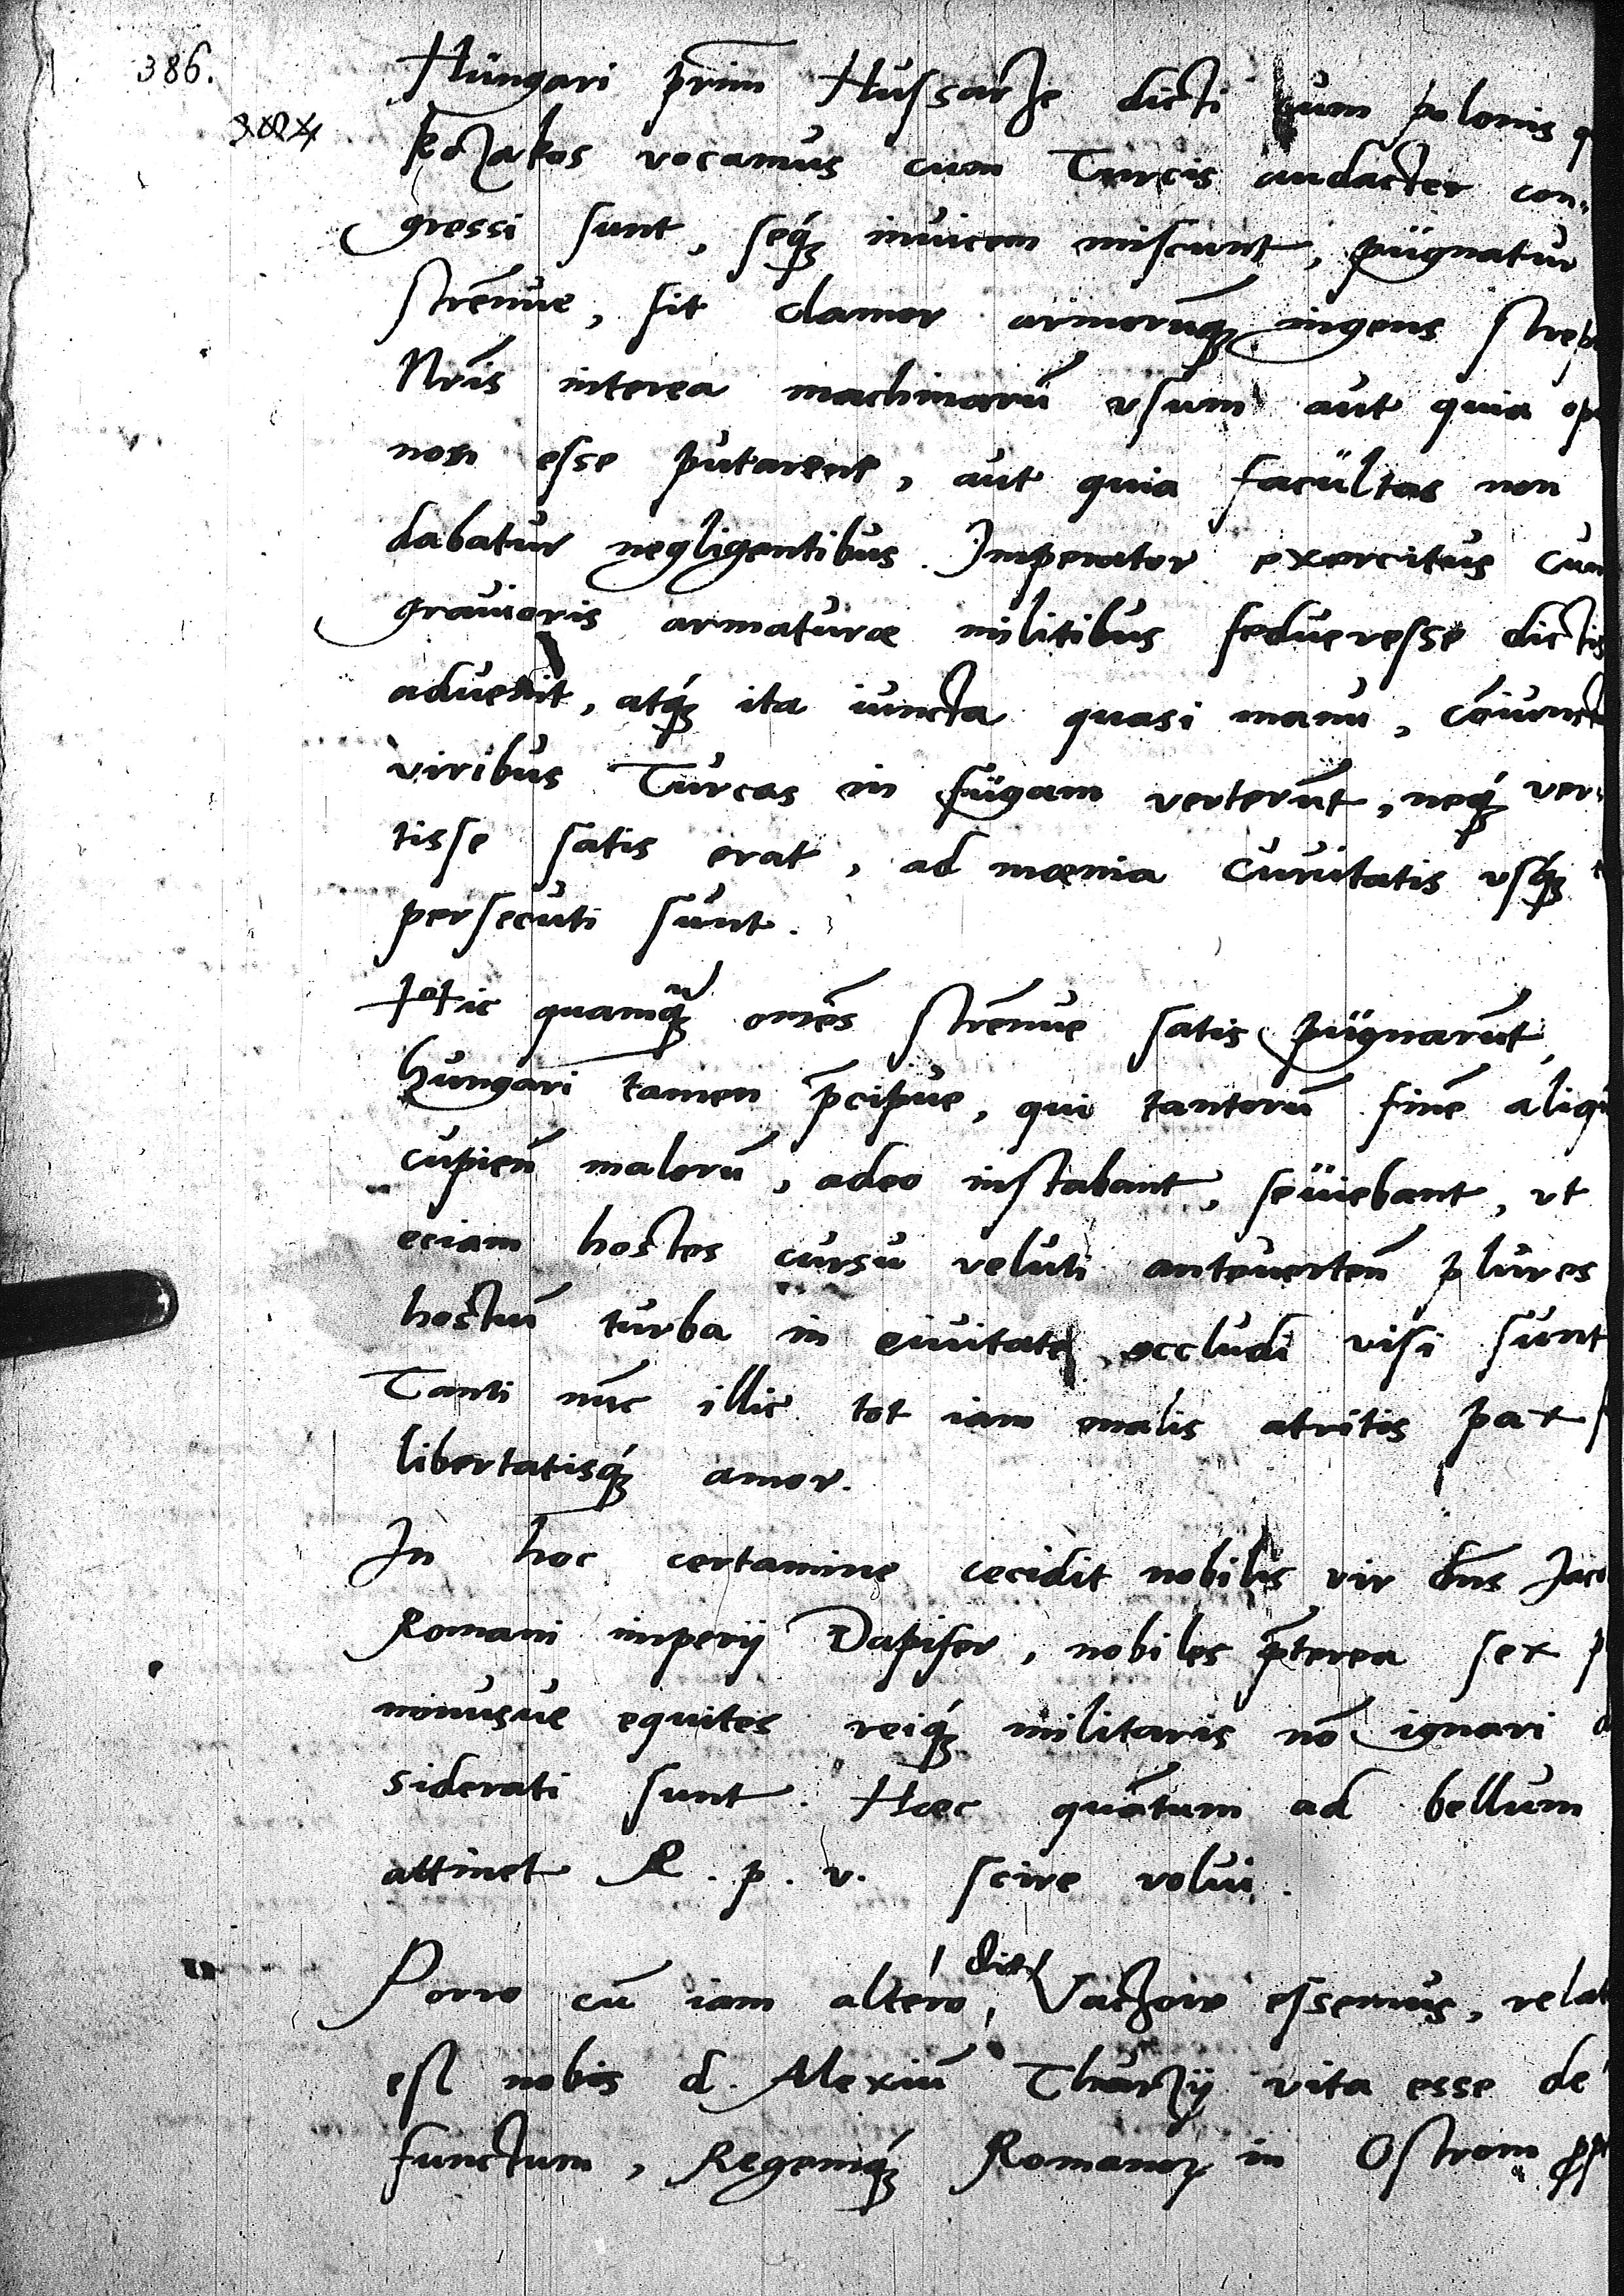 386.
Hungari prim̄ Hussarze dicti cum polonis q
kozakos vocamus cum Turcis audacter con-
gressi sunt, seqꝫ inuicem miscunt, pugnatur
strēnue, fit clamor armorumqꝫ ingens strepi
Nr̄is interea machinarū vsum aut quia op
non esse putarent, aut quia facultas non
dabatur negligentibus. Imperator exercitus cum
grauioris armaturæ militibus fedueresse dictis
aduenit, atqꝫ ita iuncta quasi manu, cōiunct
viribus Turcas in fugam verterūt, neqꝫ ver-
tisse satis erat, ad mœnia ciuitatis vsqꝫ
persecuti sunt.
Hic quamqꝫ omēs strēnue satis pugnarūt,
hungari tamen p̄cipue, qui tantorū finē aliqu
cupien̄ malorū, adeo instabant, seuiebant, vt
eciam hostes cursu veluti anteuerten̄ plures
hostiū turba in ciuitate occludi visi sunt
Tanti nūc illic tot iam malis atritis pax
libertatisqꝫ amor.
In hoc certamine cecidit nobilis vir dn̄s Jaco
Romani imperij Dapifer, nobiles p̄terea sex p
minusue equites reiqꝫ militaris nō ignari d
siderati sunt. Hæc quātum ad bellum
attinet R. p. v. scire volui.
Porro cū iam altero die Vaczoie essemus, relat
est nobis d. Alexiū Thurzij vita esse de
functum, Regemqꝫ Romanoꝝ in Ostrom